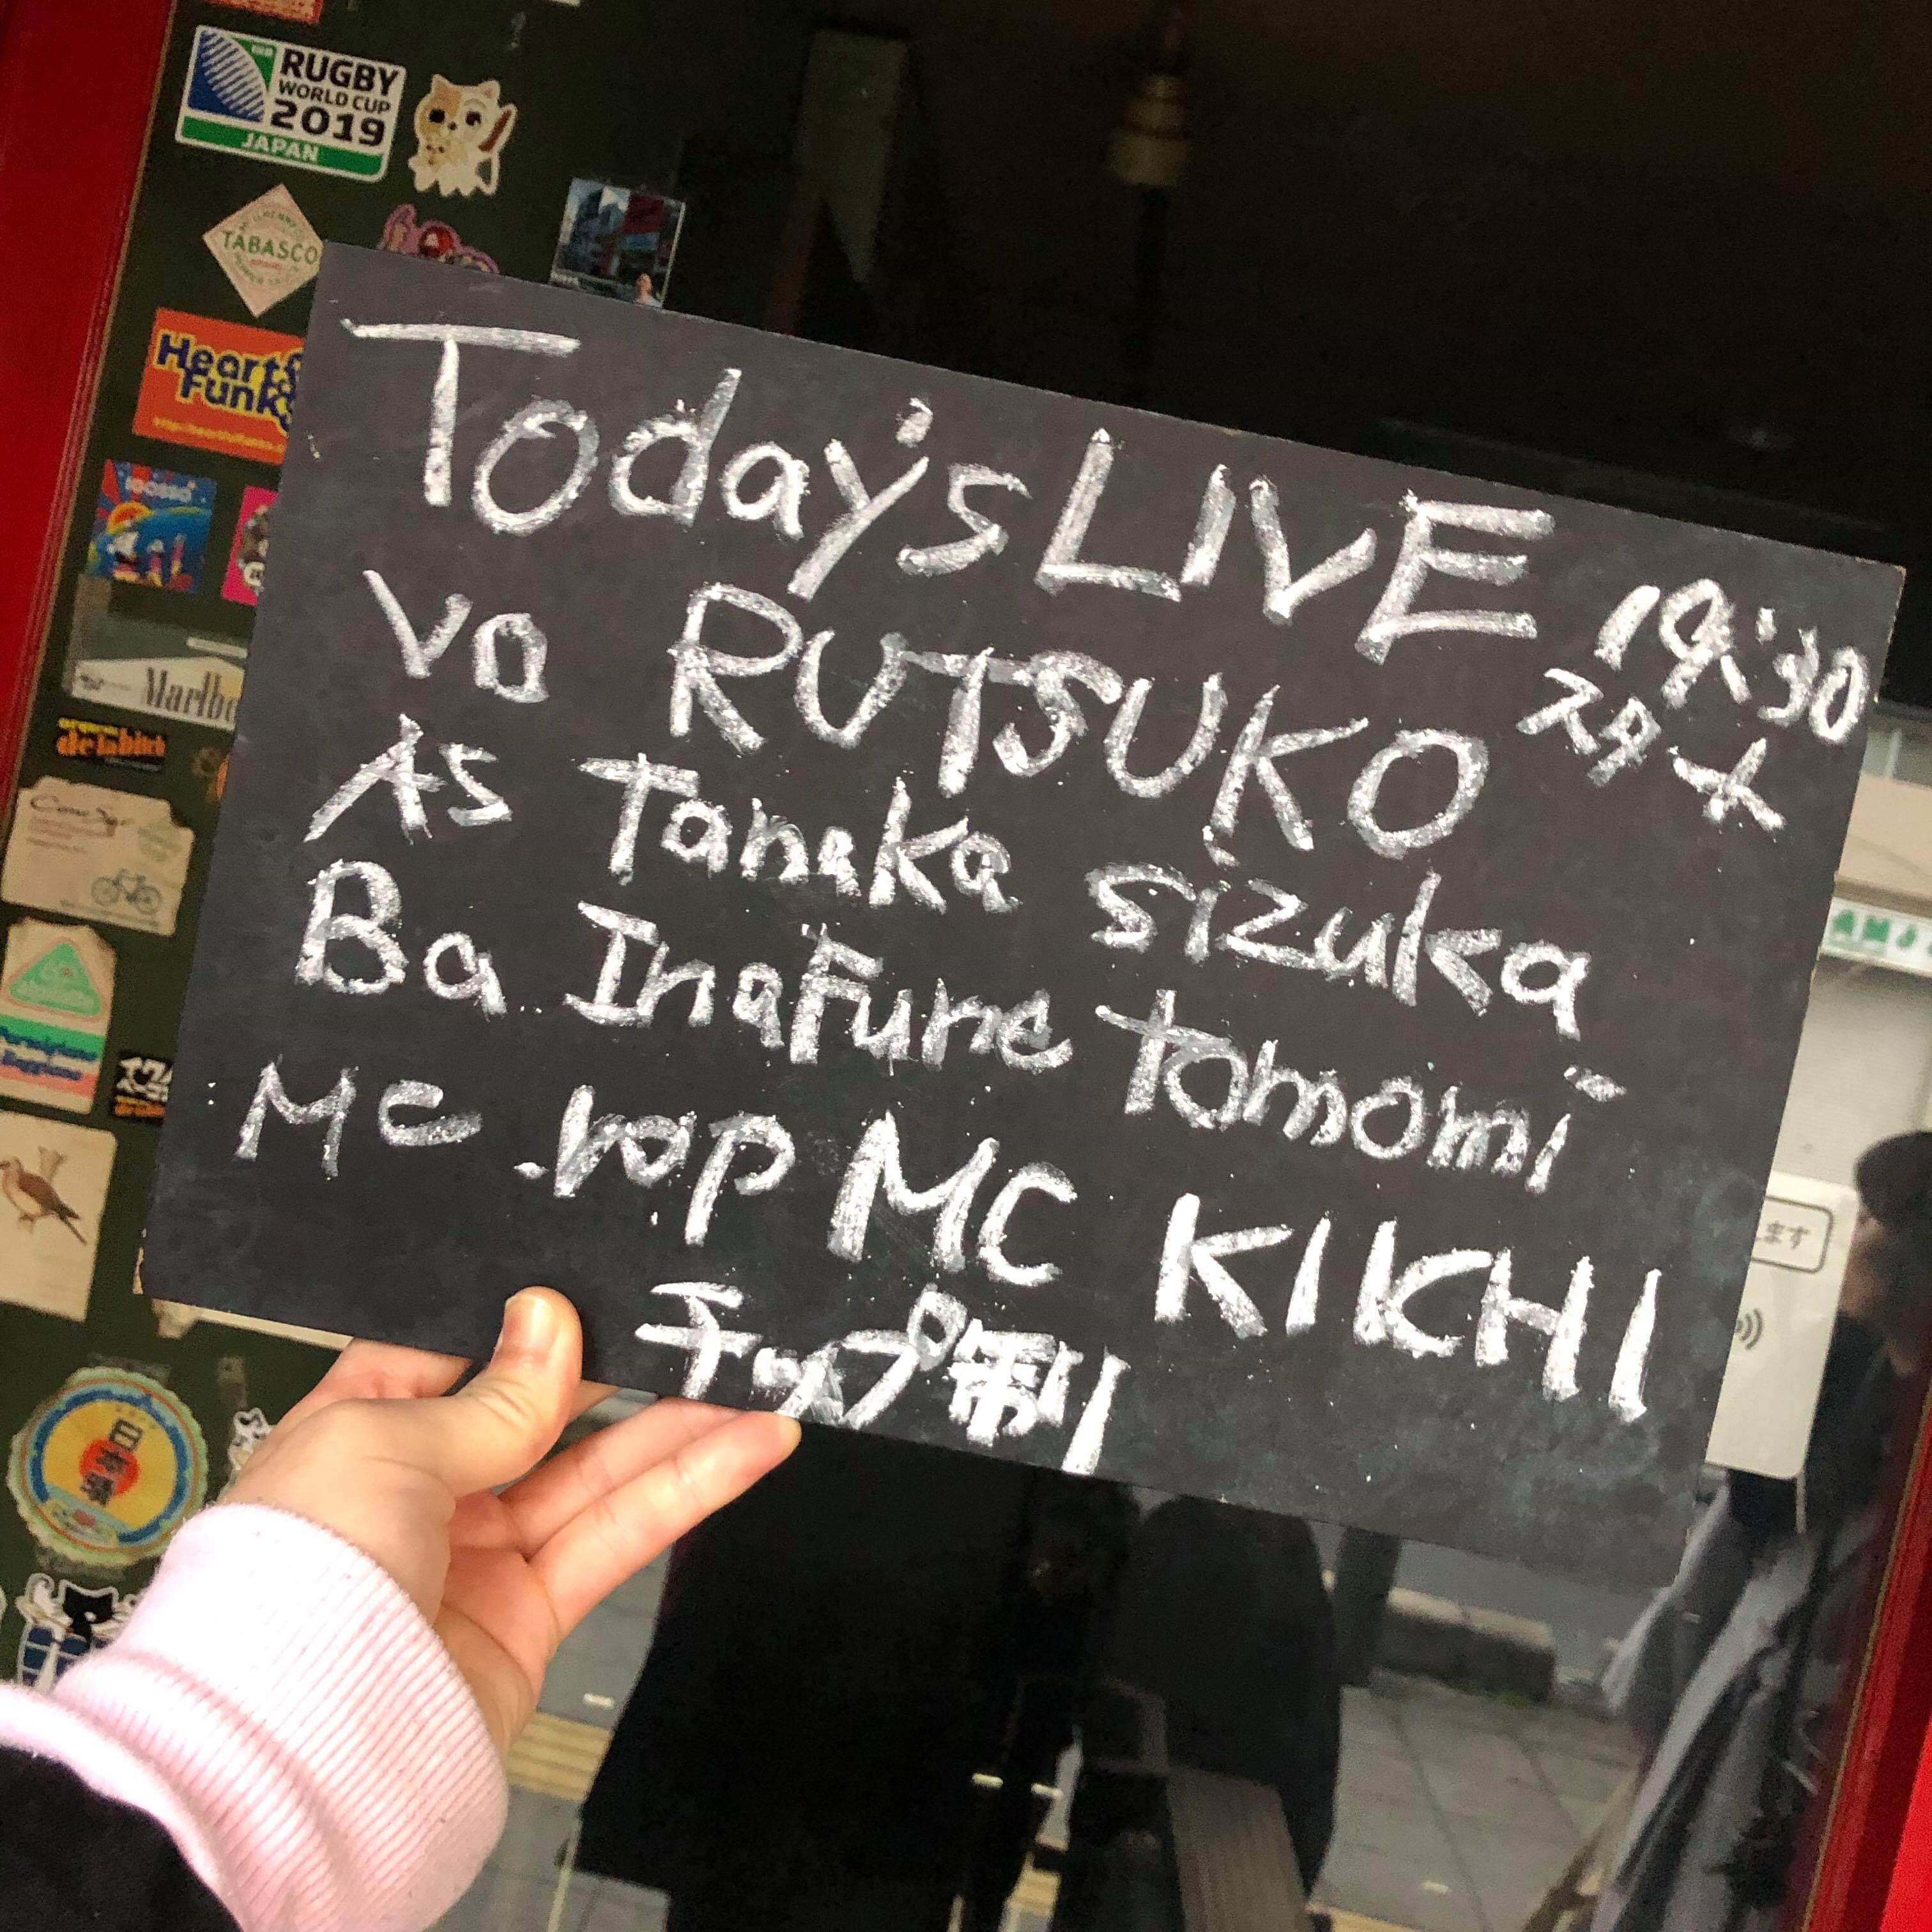 RUGBY
WORLD CUP
2019
JAPAN
TABASCO
Heart&
Funk
Marlbo
de la bitch
Today's LIVE
19:30
スタート
vo RUTSUKO
AS Tanaka sizuka
Ba InaFune tomomi
MC .rap MC KIKCHI
チップ制
ます